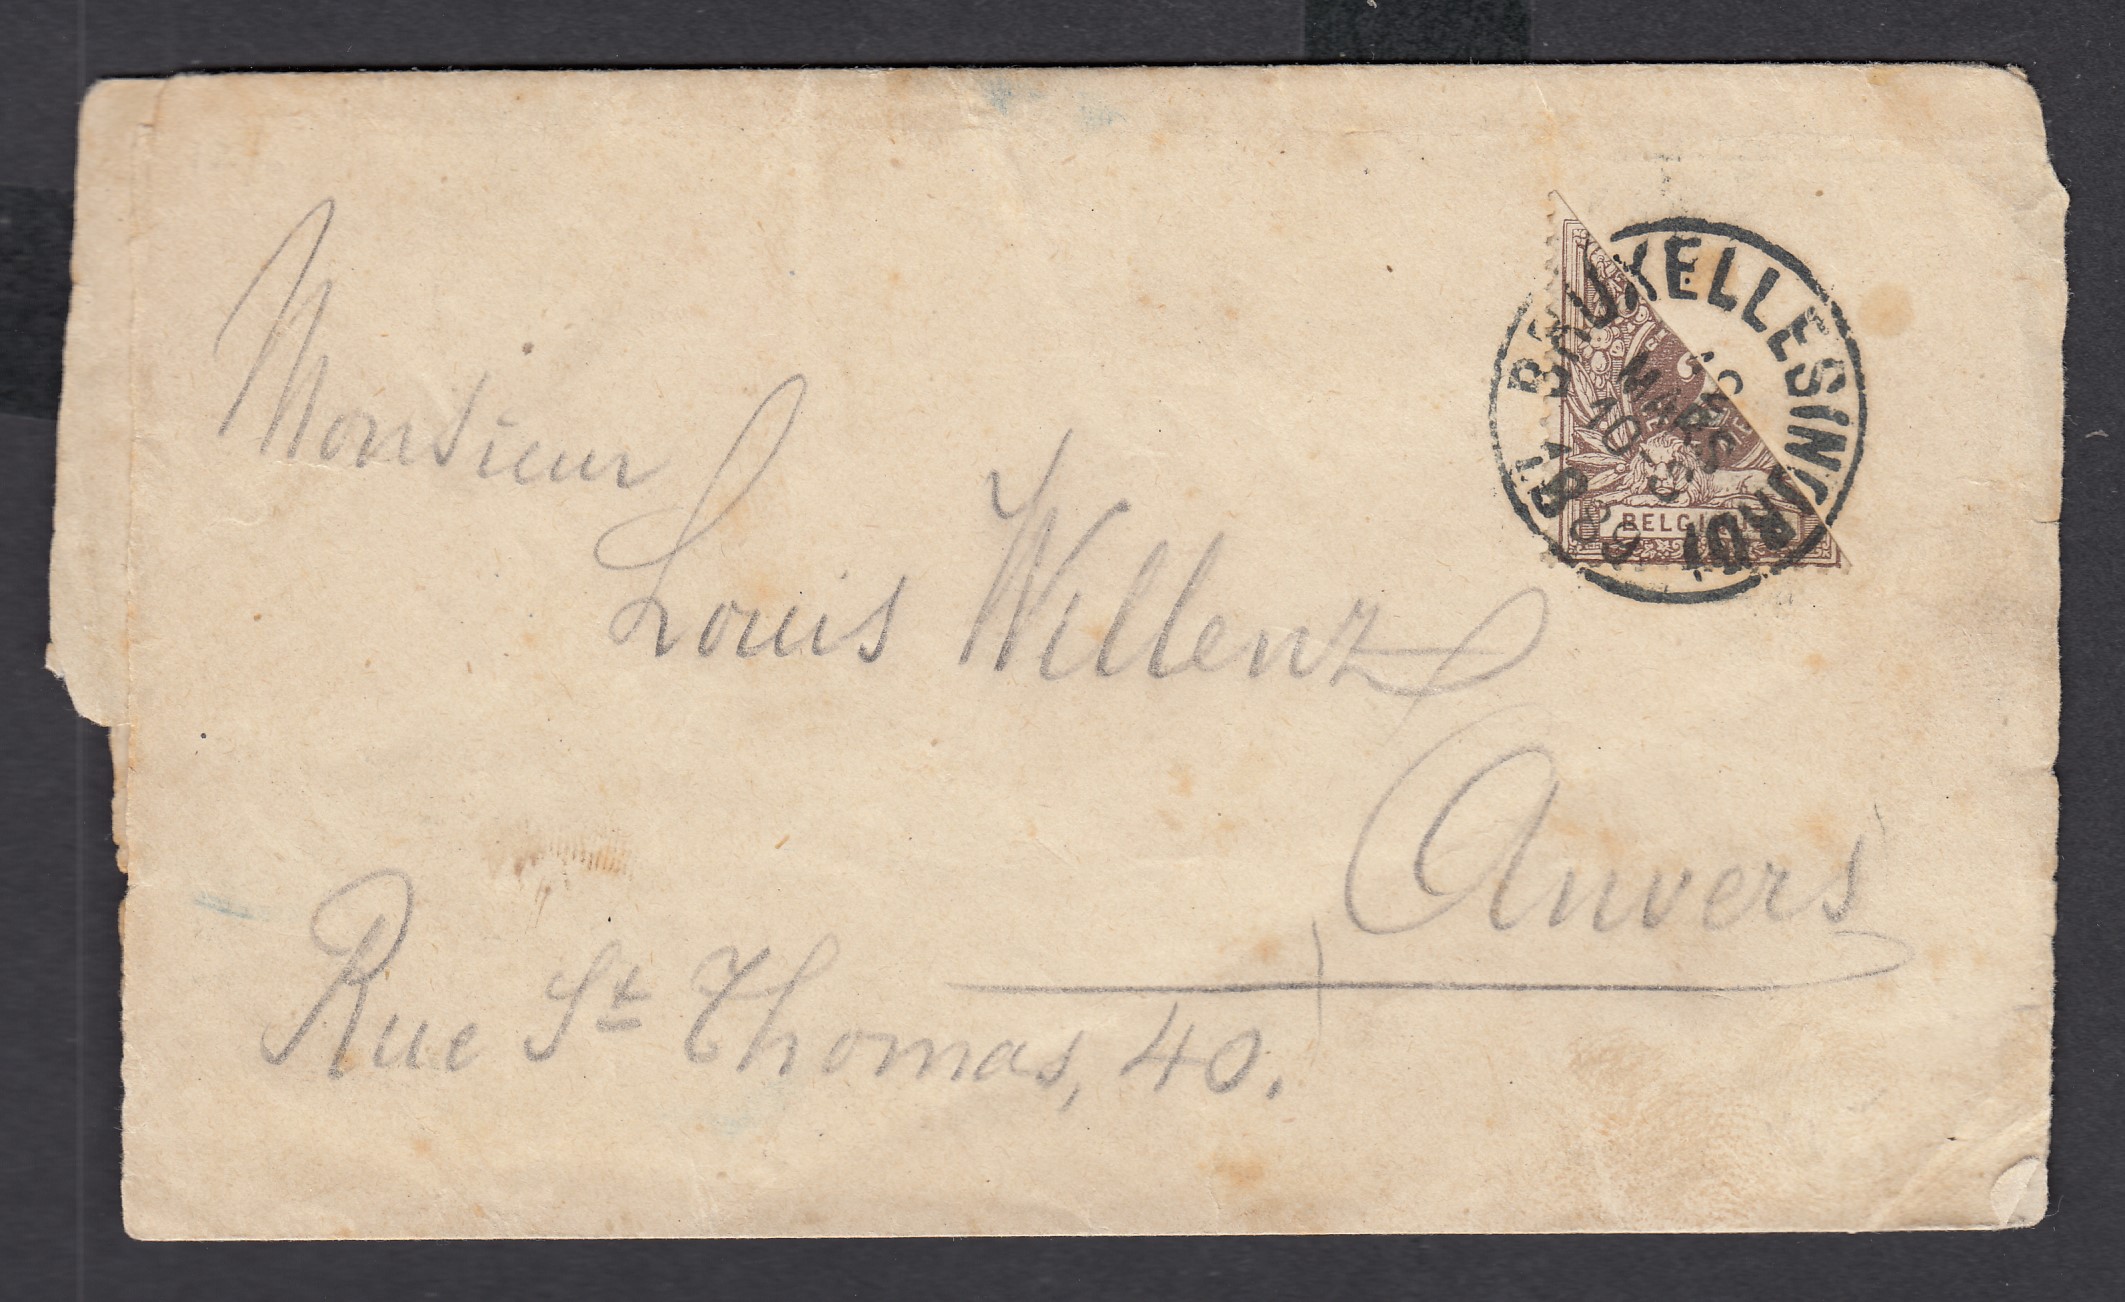 Monsieur
Louis Willenz
Anvers
Rue St Thomas, 40.
BRUXELLES (NORD)
MARS
10
BELGI